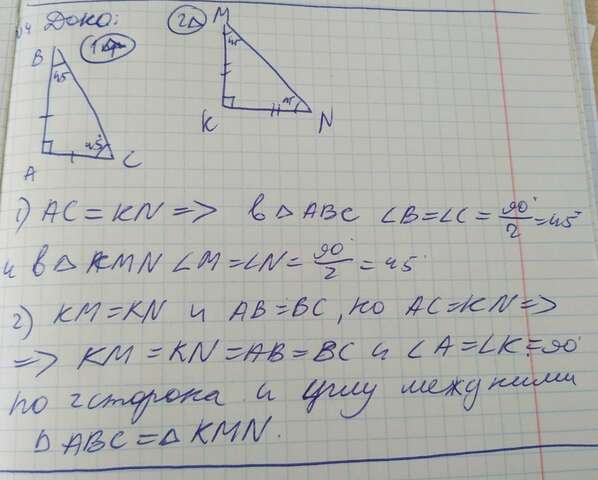 №4 Док-во:
1Δ
2Δ
B
45
A
45°
C
M
45
K
45
N
1) AC = KN => в Δ ABC ∠B=∠C = 90°/2 = 45°
и в Δ KMN ∠M=∠N= 90°/2 = 45°
2) KM=KN и AB=BC, но AC=KN=>
=> KM = KN = AB = BC и ∠A=∠K=90°
по 2 сторона и углу между ними
Δ ABC = Δ KMN.